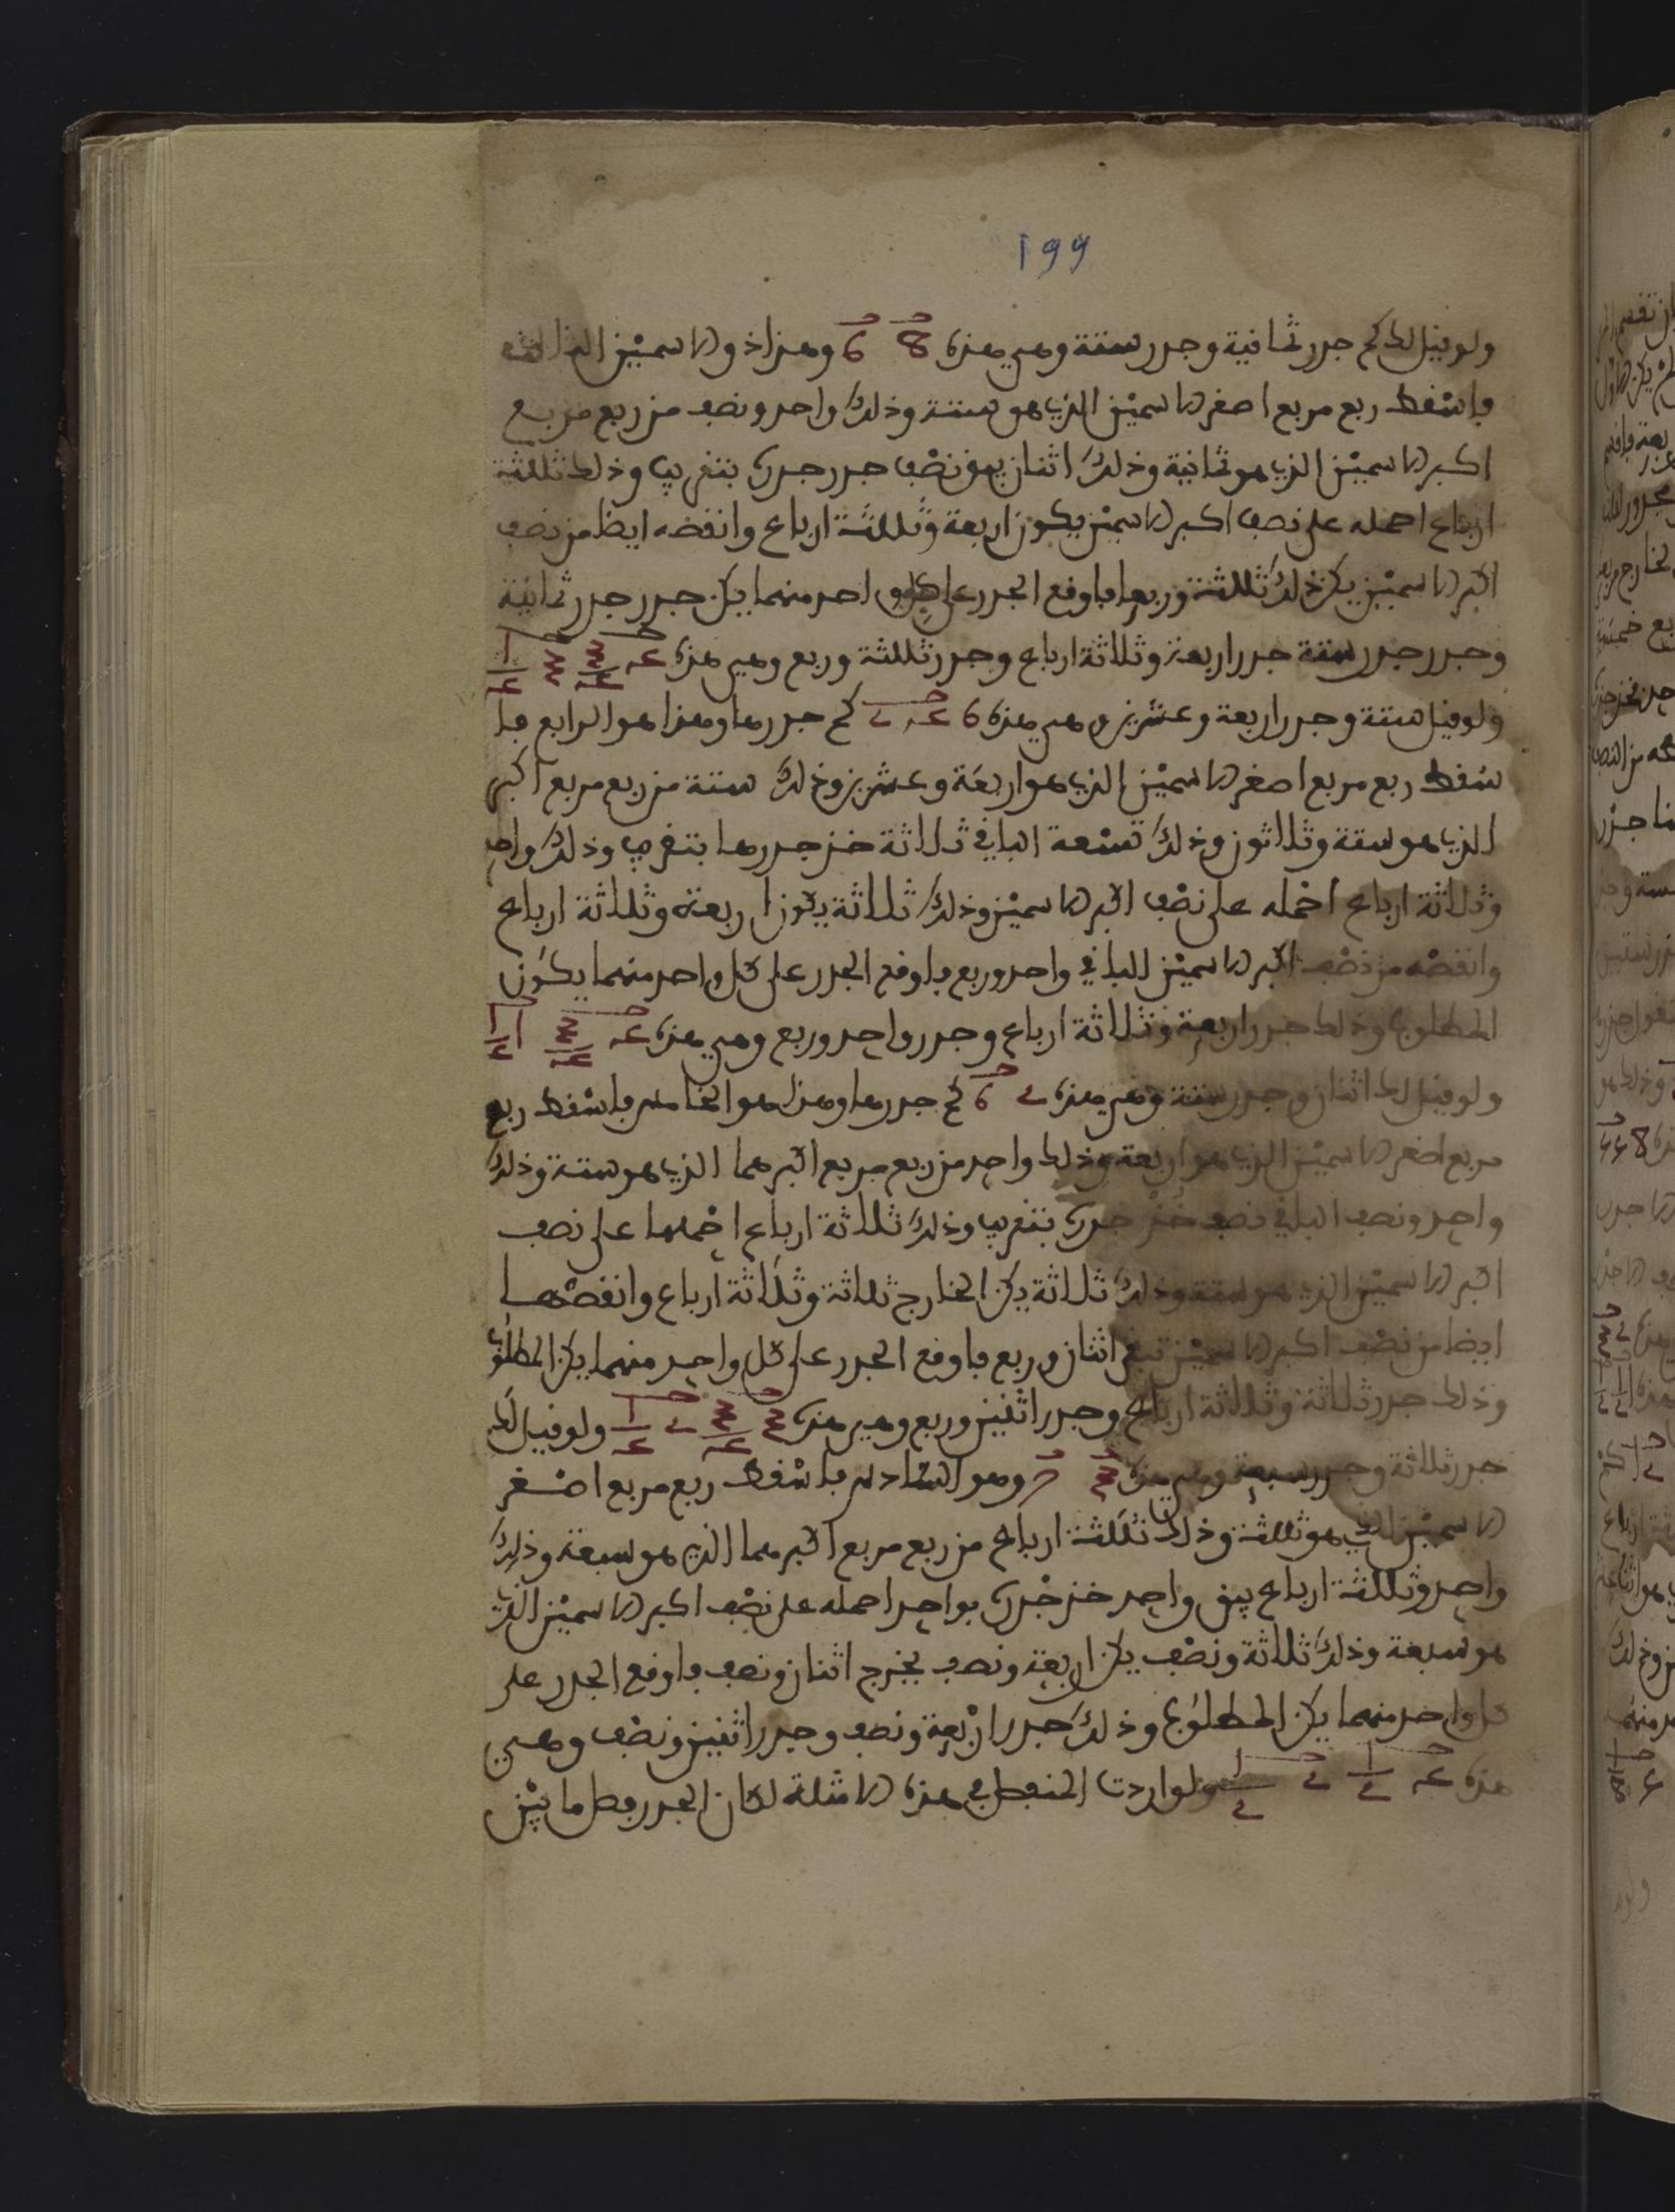 199
ولو قيل لك كم جذر ثمانية وجذر ستة وهي هذه 8 6 وهذا ذو الاسمين الثالث
فاسقط ربع مربع اصغر الاسمين الذي هو ستة وذلك واحد ونصف من ربع مربع
اكبر الاسمين الذي هو ثمانية وذلك اثنان يبق نصف خذ جذره بتقريب وذلك ثلثة
ارباع احمله على نصف اكبر الاسمين يكون اربعة وثلثة ارباع وانقصه ايظا من نصف
اكبر الاسمين يكن ذلك ثلثة وربعا فاوقع الجذر على كل واحد منهما يكن جذر جذر ثمانية
وجذر جذر ستة جذر اربعة وثلاثة ارباع وجذر ثلثة وربع وهي هذه 4 3/4 3 1/4
ولو قيل ستة وجذر اربعة وعشرين وهي هذه 6 24 كم جذرها وهذا هو الرابع فا
سقط ربع مربع اصغر الاسمين الذي هو اربعة وعشرين وذلك ستة من ربع مربع اكبر
الذي هو ستة وثلاثون وذلك تسعة الباقي ثلاثة خذ جذرها بتقريب وذلك واحد
وثلاثة ارباع احمله على نصف اكبر الاسمين وذلك ثلاثة يكون اربعة وثلاثة ارباع
وانقصه من نصف اكبر الاسمين الباقي واحد وربع فاوقع الجذر على كل واحد منهما يكون
المطلوب وذلك جذر اربعة وثلاثة ارباع وجذر واحد وربع وهي هذه 4 3/4 1 1/4
ولو قيل لك اثنان وجذر ستة وهي هذه 2 6 كم جذرها وهذا هو الخامس فاسقط ربع
مربع اصغر الاسمين الذي هو اربعة وذلك واحد من ربع مربع اكبرهما الذي هو ستة وذلك
واحد ونصف الباقي نصف خذ جذره بتقريب وذلك ثلاثة ارباع احملها على نصف
اكبر الاسمين الذي هو ستة وذلك ثلاثة يكن الخارج ثلاثة وثلاثة ارباع وانقصها
ايضا من نصف اكبر الاسمين تبق اثنان وربع فاوقع الجذر على كل واحد منهما يكن المطلوب
وذلك جذر ثلاثة وثلاثة ارباع وجذر اثنين وربع وهي هذه 3 3/4 2 1/4 ولو قيل لك
جذر ثلاثة وجذر سبعة وهي هذه 3 7 وهو السادس فاسقط ربع مربع اصغر
الاسمين الذي هو ثلثة وذلك ثلثة ارباع من ربع مربع اكبرهما الذي هو سبعة وذلك
واحد وثلثة ارباع يبق واحد خذ جذره بواحد احمله على نصف اكبر الاسمين الذي
هو سبعة وذلك ثلاثة ونصف يكن اربعة ونصف يخرج اثنان ونصف فاوقع الجذر على
كل واحد منهما يكن المطلوب وذلك جذر اربعة ونصف وجذر اثنين ونصف وهي
هذه 4 1/2 2 1/2 ولو اردت المنفصل في هذه الامثلة لكان الجذر فصل ما بين